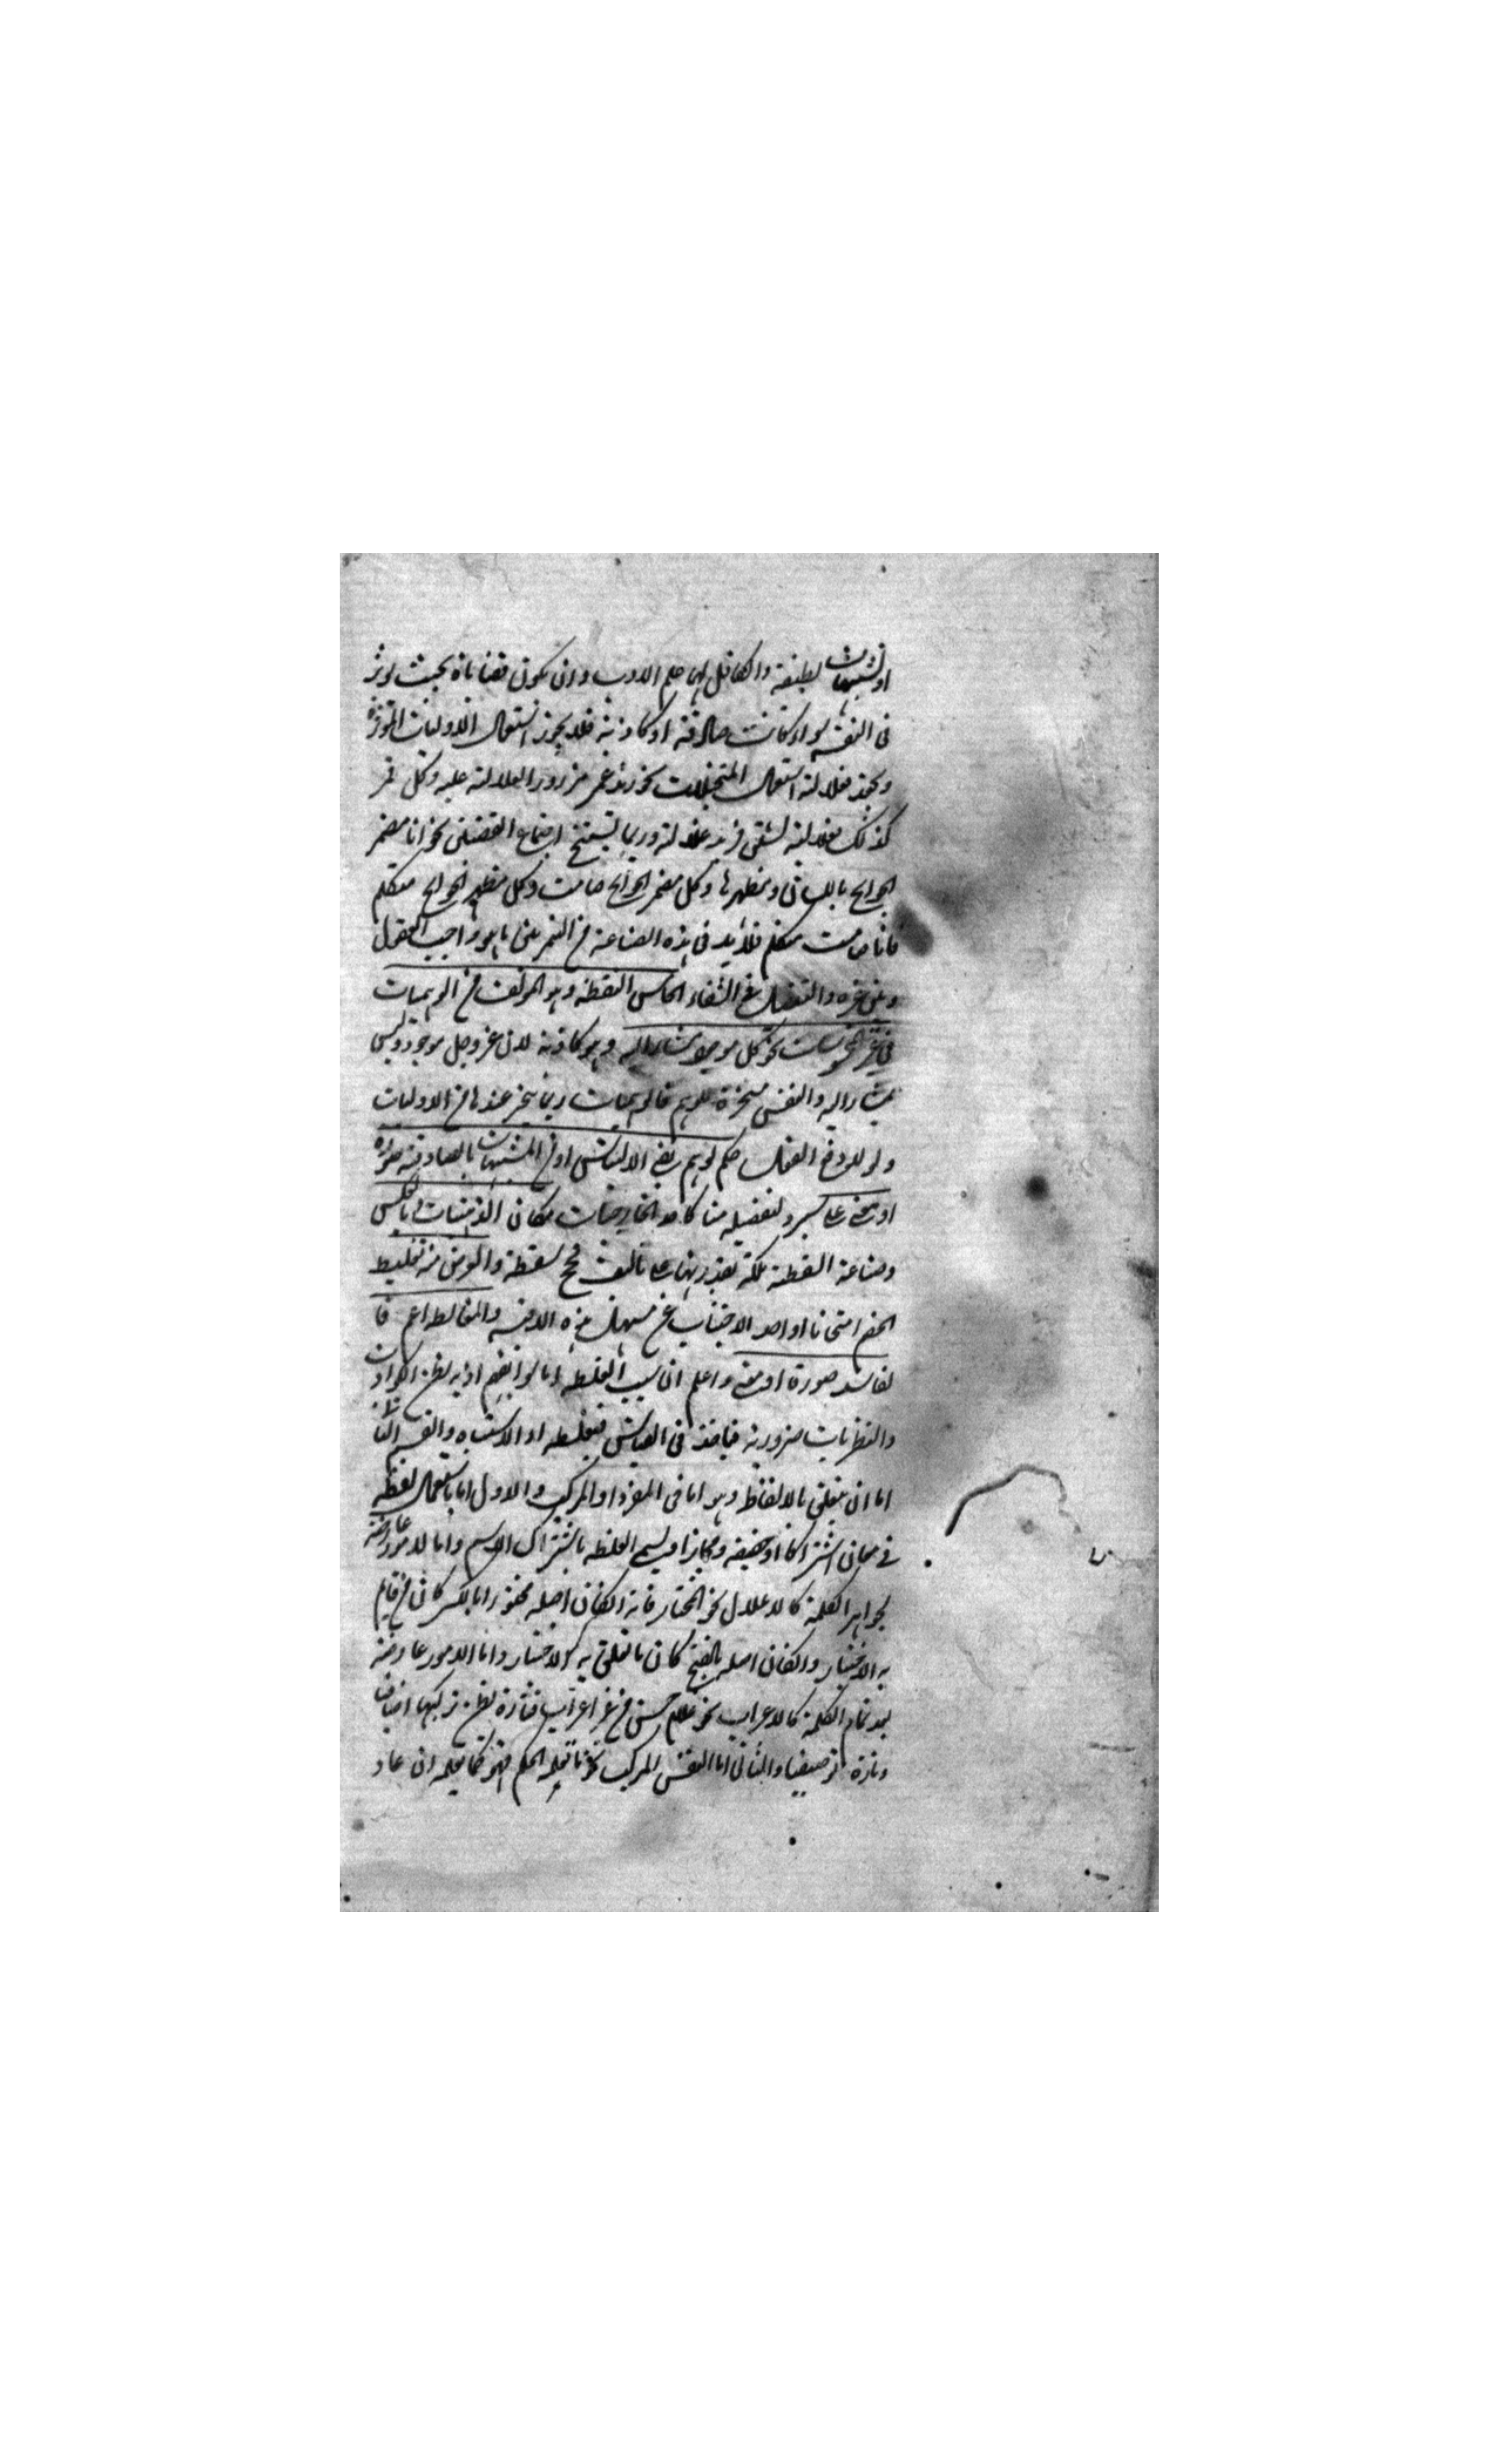 او تشبيهات لطيفة والكافل لها علم الادب وان تكون قضاياه بحيث توثر
في النفس سواء كانت صادقة او كاذبة فلا يجوز استعمال الاوليات الغير الموثرة
استعمال المتخيلات نحو زر عن زرور الغلالة عليه وكل قمر
كذلك لنشق فربه غلالته وربما يستنتج اجتماع النقيضين نحو انا مضمر
الحوايج باللسان ومظهرها وكل مضمر الحوايج صامت وكل مظهر الحوايج متكلم
فانا صامت متكلم فلا بد في هذه الصناعة من التمييز بين ما هو واجب القبول
وبين غيره والتفصيل في الشفاء الخامس السفسطة وهو المولف من الوهميات
في غير المحسوسات نحو كل موجود مشار اليه وهو كاذبة لان عز وجل موجود وليس
بمشار اليه والنفس مسخرة للوهم فالوهميات ربما يتميز عندها من الاوليات
ولو لا دفع العقل حكم الوهم بقي الالتباس او من المشبهات بالصادقة صورة
او معنى كاخذ الخارجيات مكان الذهنيات او بالعكس
وصناعة السفسطة ملكة يقتدر بها على تاليف حجج سفسطة والغرض منه تغليط
الخصم امتحانا او الاجتناب عن هذه الاقيسة والمغالطة اعم فا
لفاسد صورة او معنى واعلم ان سبب الغلط اما سوء الفهم
والنظريات ضرورية فياخذ في القياس فيغلط او الاشتباه والقسم الثاني
اما ان يتعلق بالالفاظ وهو اما في المفرد او المركب والاول اما باستعمال لفظ
في معان اشتراكا او حقيقة ومجازا ويسمى الغلط باشتراك الاسم واما لامور عارضة
بجواهر الكلمة كالاعلال نحو المختار فانه ان كان اصله مختير بالكسر كان من قام
به الاختيار وان كان اصله بالفتح كان ما تعلق به الاختيار واما لامور عارضة
بعد تمام الكلمة كالاعراب نحو غلام حسن من غير اعراب فتارة يظن تركيبها اضافيا
وتارة توصيفيا والثاني اما لنفس المركب نحو ما يعلمه الحكيم فهو كما يعلمه ان عاد